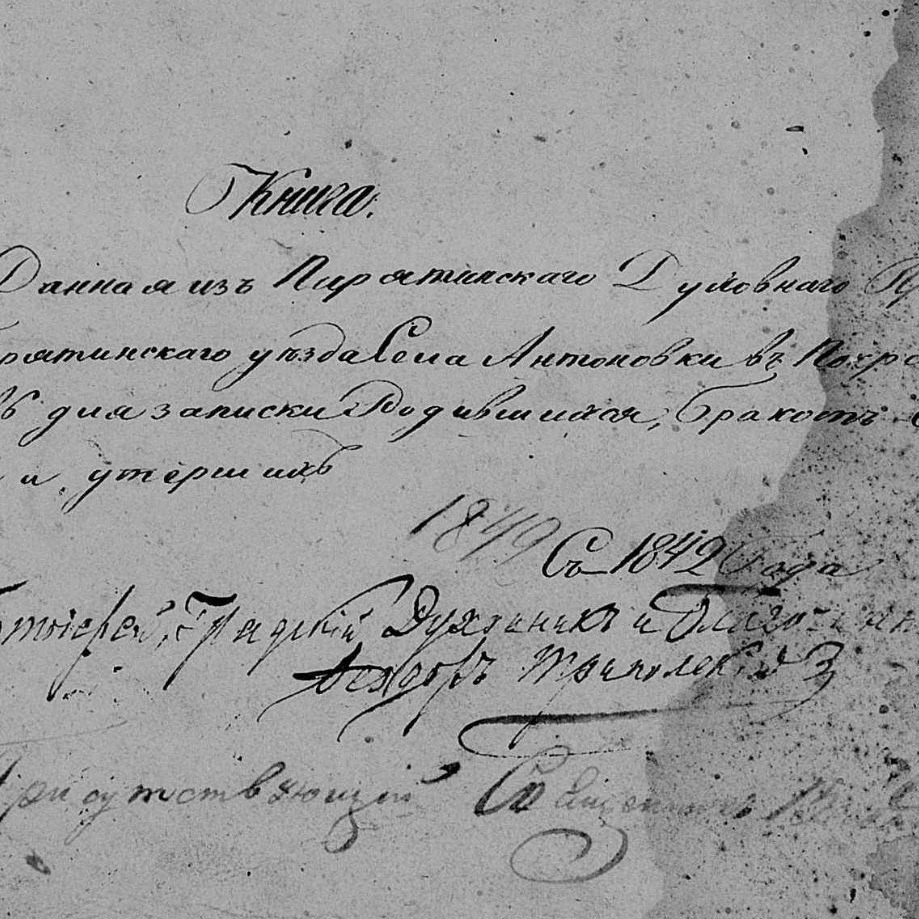 Книга.
Данная изъ Пирятинскаго Духовнаго
рятинскаго уѣзда Села Антоновки въ Покро
для записки Родившихся, бракомъ
и умершихъ
1849
Съ 1842 Года
Протоіерей, Градскій Духовникъ и Благочин
Ѳеодоръ Триполскій
Присутствующій Священникъ